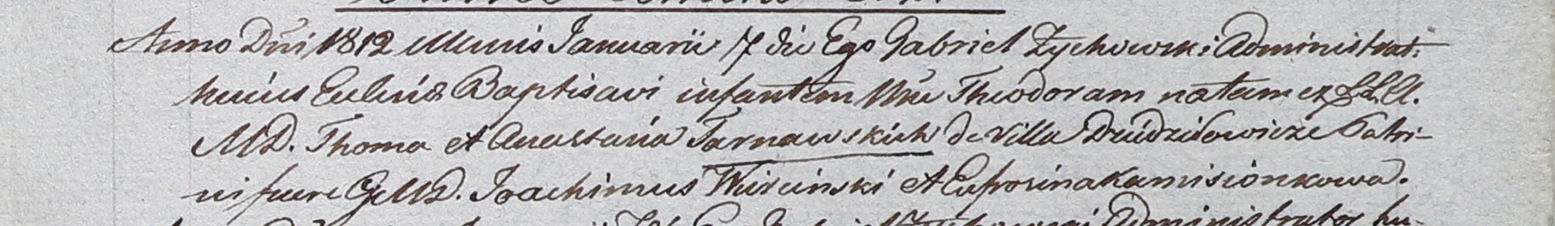 Anno Dñi 1812 Mensis Januarii 7 die Ego Gabriel Zychowski Administrat:
huius Ecclesiæ Baptisavi infantem Nñe Theodoram natam ex LL.
MD. Thoma et Anastasia Tarnawskich de Villa Patri-
ni fuere GMD. Joachimus Wiercinski et Eufrosina Kamisionkowa.
Administrator hu-